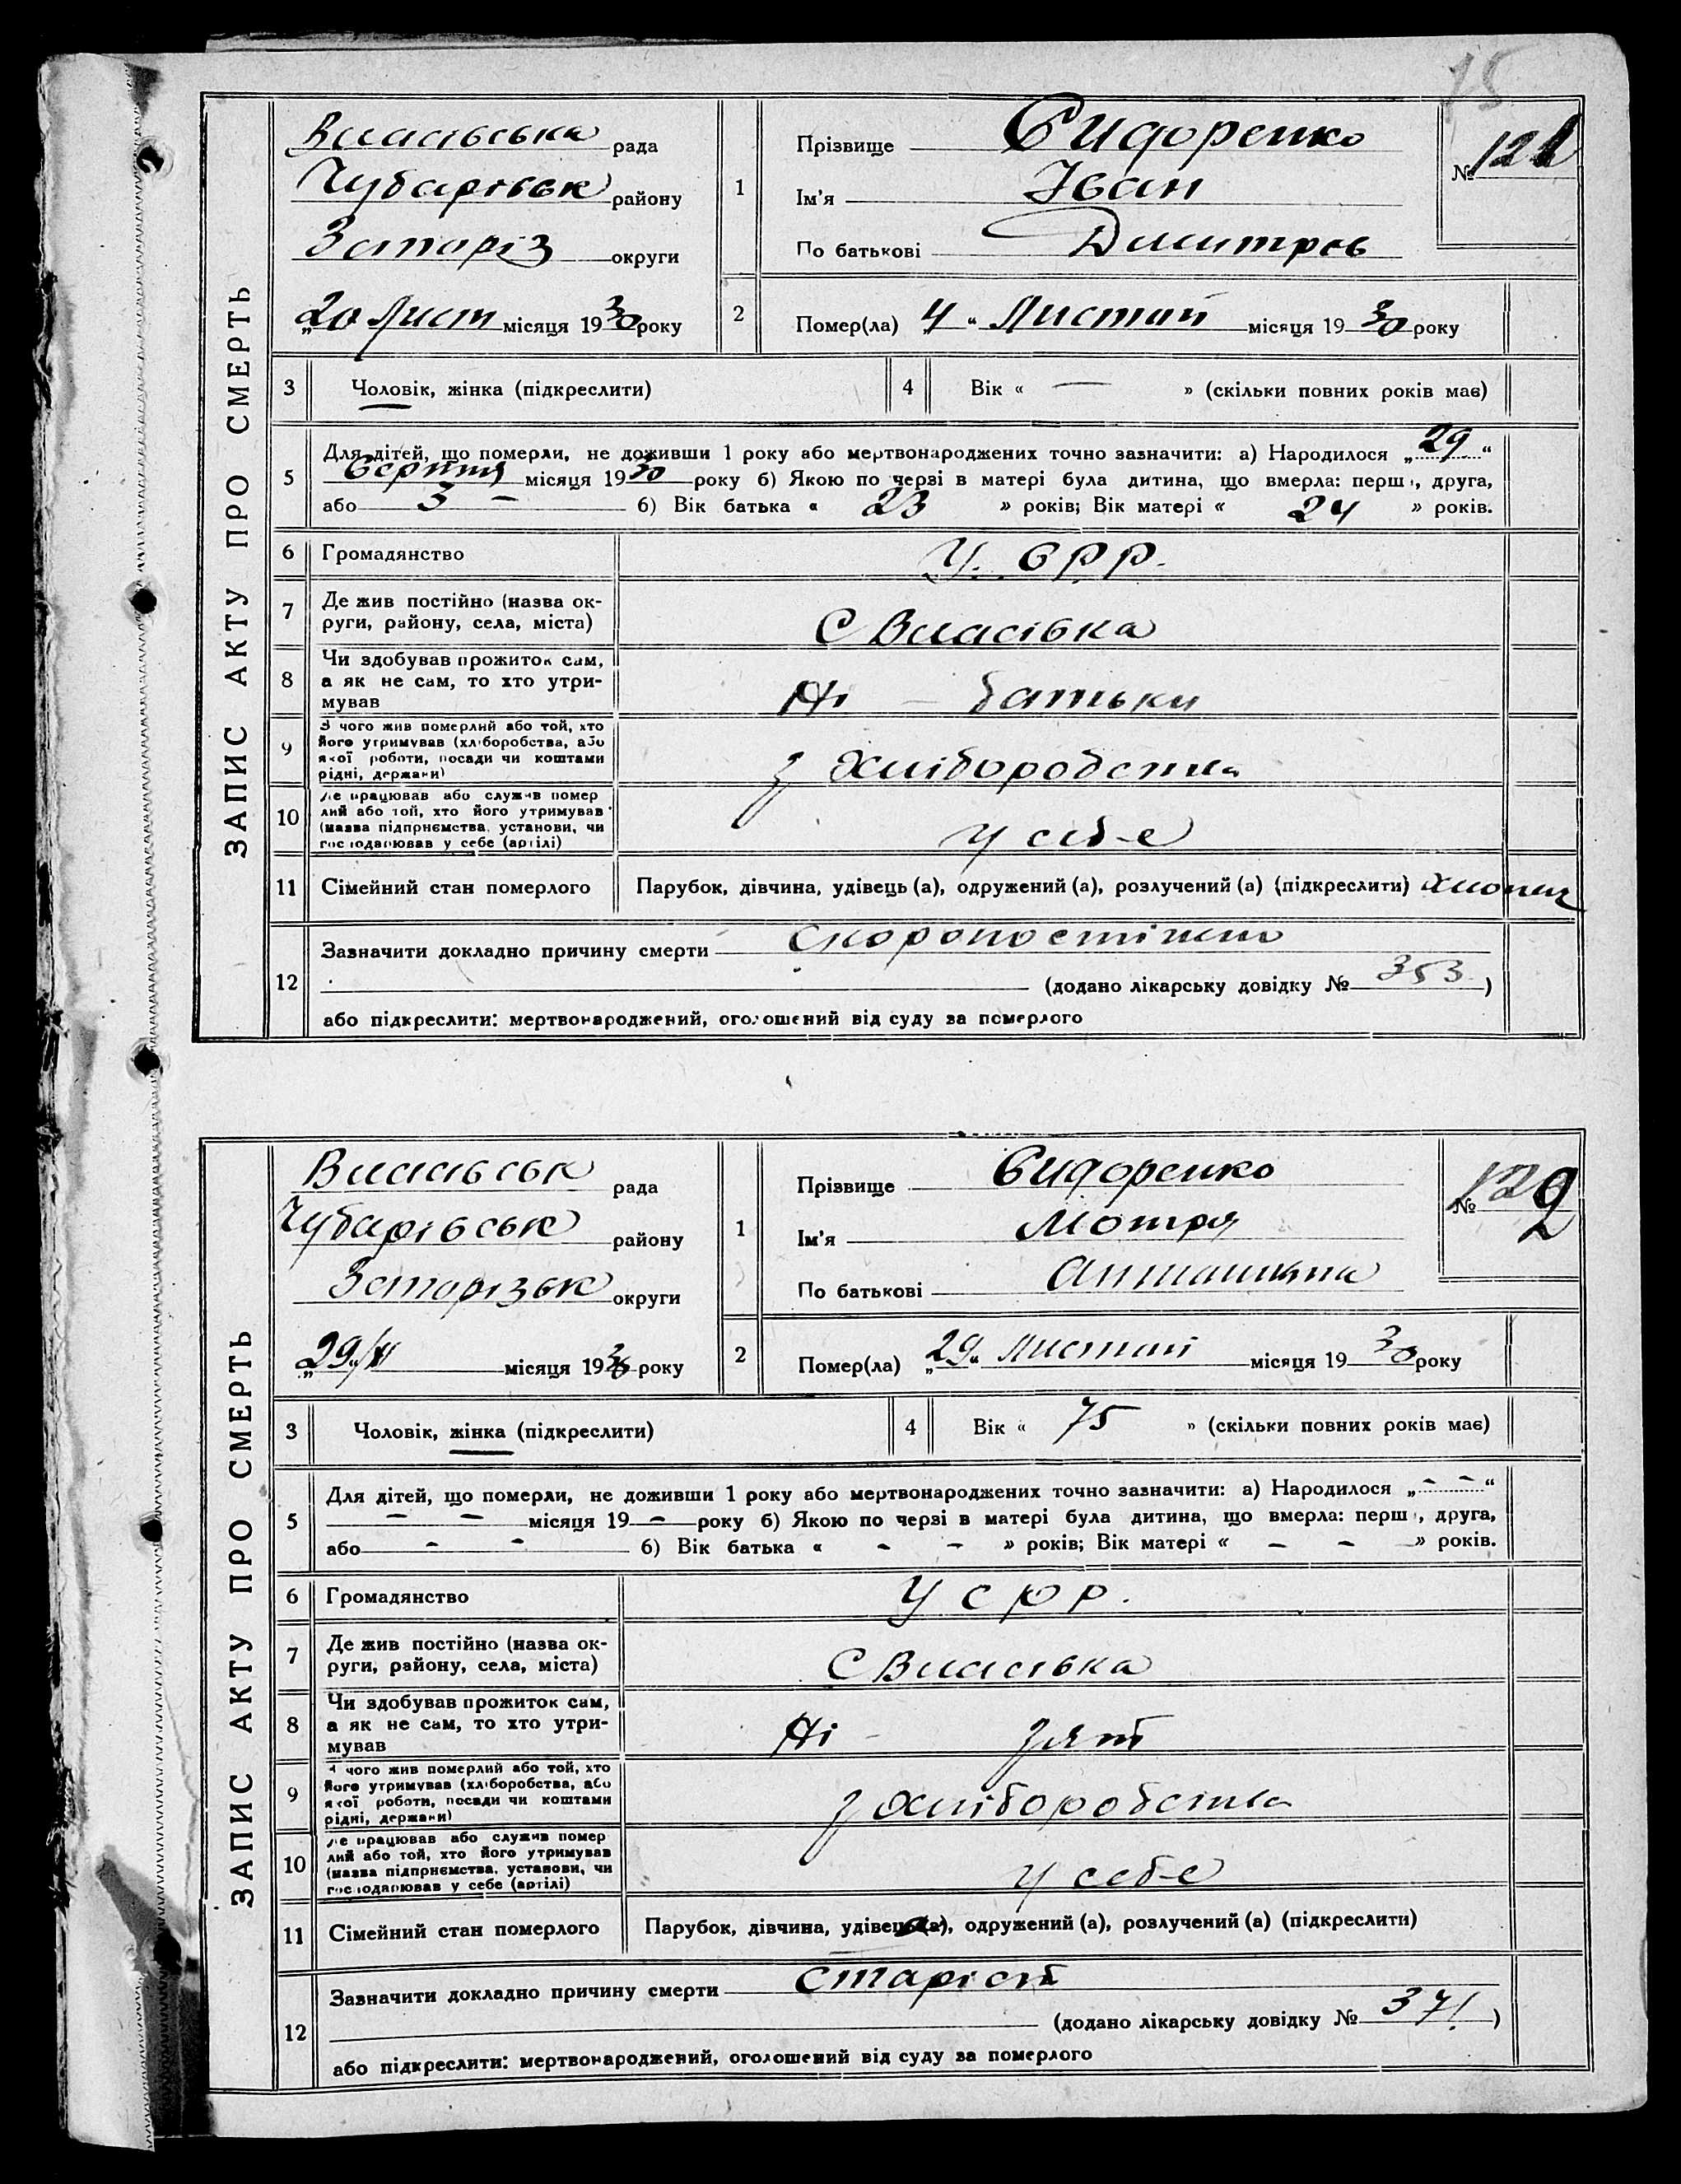 15
ЗАПИС АКТУ ПРО СМЕРТЬ
Власівська рада
Чубарівськ району
Запоріз округи
„20 Лист місяця 1930 року
1 Прізвище Сидоренко
Ім'я Іван
По батькові Дмитров
№ 121
2 Помер(ла) „4“ Листоп місяця 1930 року
3 Чоловік, жінка (підкреслити)
4 Вік « — » (скільки повних років має)
5 Для дітей, що померли, не доживши 1 року або мертвонароджених точно зазначити: а) Народилося „29“
Серпня місяця 1930 року б) Якою по черзі в матері була дитина, що вмерла: перша, друга,
або 3 – б) Вік батька « 23 » років; Вік матері « 24 » років.
6 Громадянство У. С Р Р.
7 Де жив постійно (назва ок-
руги, району, села, міста) С Власівка
8 Чи здобував прожиток сам,
а як не сам, то хто утри-
мував Ні — батьки
9 З чого жив померлий або той, хто
його утримував (хліборобства, або
якої роботи, посади чи коштами
рідні, держави) з Хліборобства
10 Де працював або служив помер
лий або той, хто його утримував
(назва підприємства, установи, чи
господарював у себе (артілі) у себе
11 Сімейний стан померлого Парубок, дівчина, удівець (а), одружений (а), розлучений (а) (підкреслити) хлопец
12 Зазначити докладно причину смерти скоропостіжно
(додано лікарську довідку № 353)
або підкреслити: мертвонароджений, оголошений від суду за померлого
ЗАПИС АКТУ ПРО СМЕРТЬ
Власівськ рада
Чубарівськ району
Запорізьк округи
„29“/XI місяця 1930 року
1 Прізвище Сидоренко
Ім'я Мотря
По батькові
№ 122
2 Помер(ла) „29“ Листоп місяця 1930 року
3 Чоловік, жінка (підкреслити)
4 Вік « 75 » (скільки повних років має)
5 Для дітей, що померли, не доживши 1 року або мертвонароджених точно зазначити: а) Народилося „- -“
- - місяця 19 - року б) Якою по черзі в матері була дитина, що вмерла: перша, друга,
або - - б) Вік батька « - - » років; Вік матері « - - » років.
6 Громадянство У С Р Р.
7 Де жив постійно (назва ок-
руги, району, села, міста) С Власівка
8 Чи здобував прожиток сам,
а як не сам, то хто утри-
мував Ні - зят
9 З чого жив померлий або той, хто
його утримував (хліборобства, або
якої роботи, посади чи коштами
рідні, держави) з Хліборобства
10 Де працював або служив помер
лий або той, хто його утримував
(назва підприємства, установи, чи
господарював у себе (артілі) у себе
11 Сімейний стан померлого Парубок, дівчина, удівець (а), одружений (а), розлучений (а) (підкреслити)
12 Зазначити докладно причину смерти старіст
(додано лікарську довідку № 371)
або підкреслити: мертвонароджений, оголошений від суду за померлого